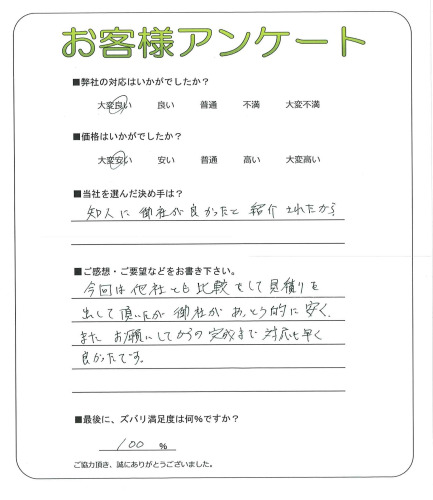 お客様アンケート
■弊社の対応はいかがでしたか？
大変良い 良い 普通 不満 大変不満
■価格はいかがでしたか？
大変安い 安い 普通 高い 大変高い
■当社を選んだ決め手は？
知人に御社が良かったと紹介されたから
■ご感想・ご要望などをお書き下さい。
今回は他社とも比較をして見積りを
出して頂いたが御社があっとう的に安く、
また お願いしてからの完成まで対応も早く
良かったです。
■最後に、ズバリ満足度は何%ですか？
100 %
ご協力頂き、誠にありがとうございました。